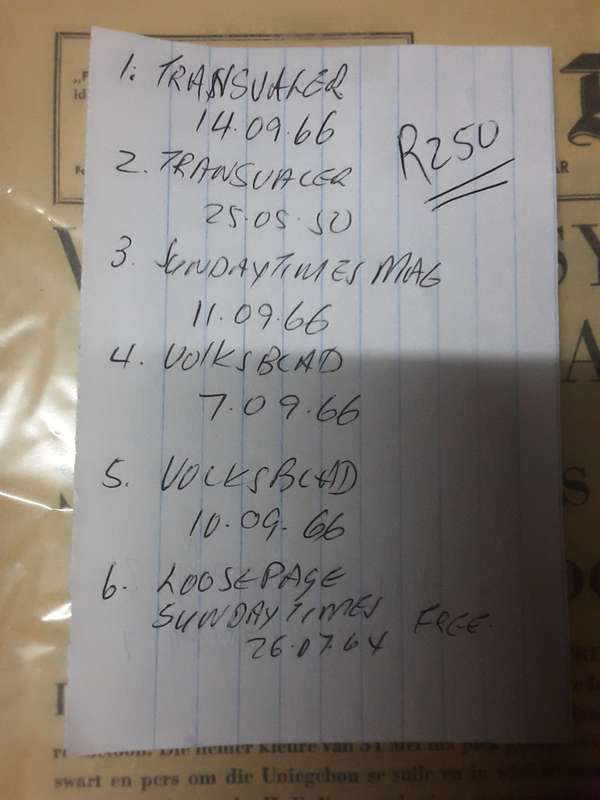 1. TRANSVALER
14.09.66
R250
2. TRANSVALER
25.05.50
3. SUNDAY TIMES MAG
11.09.66
4. VOLKSBLAD
7.09.66
5. VOLKSBLAD
10.09.66
6. LOOSE PAGE
SUNDAY TIMES FREE.
26.07.64
swart en pers om die Uniegebou se